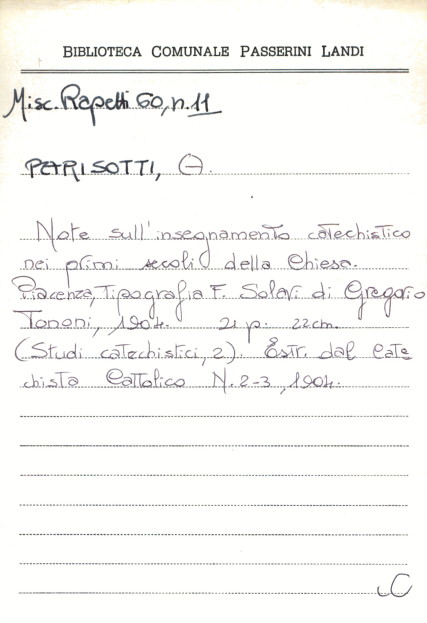 BIBLIOTECA COMUNALE PASSERINI LANDI
Misc. Rapetti 60, n. 11
PARISOTTI, G.
Note sull'insegnamento catechistico
nei primi secoli della Chiesa.
Piacenza, Tipografia F. Solari di Gregorio
Tononi, 1904. 21 p. 22 cm.
(Studi catechistici, 2). Estr. dal Cate
chista Cattolico N. 2-3, 1904.